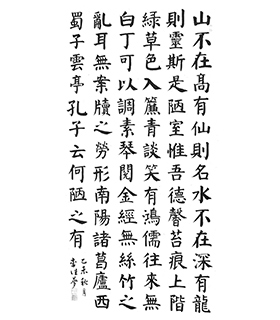 山不在髙有仙則名水不在深有龍
則靈斯是陋室惟吾德馨苔痕上階
緑草色入簾青談笑有鴻儒往來無
白丁可以調素琴閱金經無絲竹之
亂耳無案牘之勞形南陽諸葛廬西
蜀子雲亭孔子云何陋之有
乙未秋月